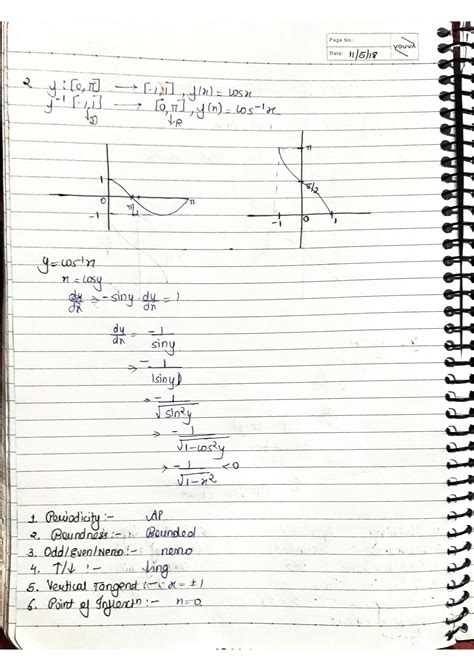 Page No.:
Date: 11/5/18
youvA
2 y : [0, π] → [-1,1] , y(x) = cosx
y⁻¹ [-1,1] → [0, π] , y(x) = cos⁻¹x
↓D ↓R
1
0
-1
π/2
π
π
π/2
-1
0
1
y = cos⁻¹x
x = cosy
dy/dx ⇒ -siny . dy/dx = 1
dy/dx = -1/siny
⇒ -1/|siny|
⇒ -1/√sin²y
⇒ -1/√1-cos²y
⇒ -1/√1-x² < 0
1. Periodicity :- AP
2. Boundness :- Bounded
3. Odd/Even/Neno :- neno
4. ↑/↓ :- ↓ing
5. Vertical Tangent :- x = ±1
6. Point of Inflexn :- x=0